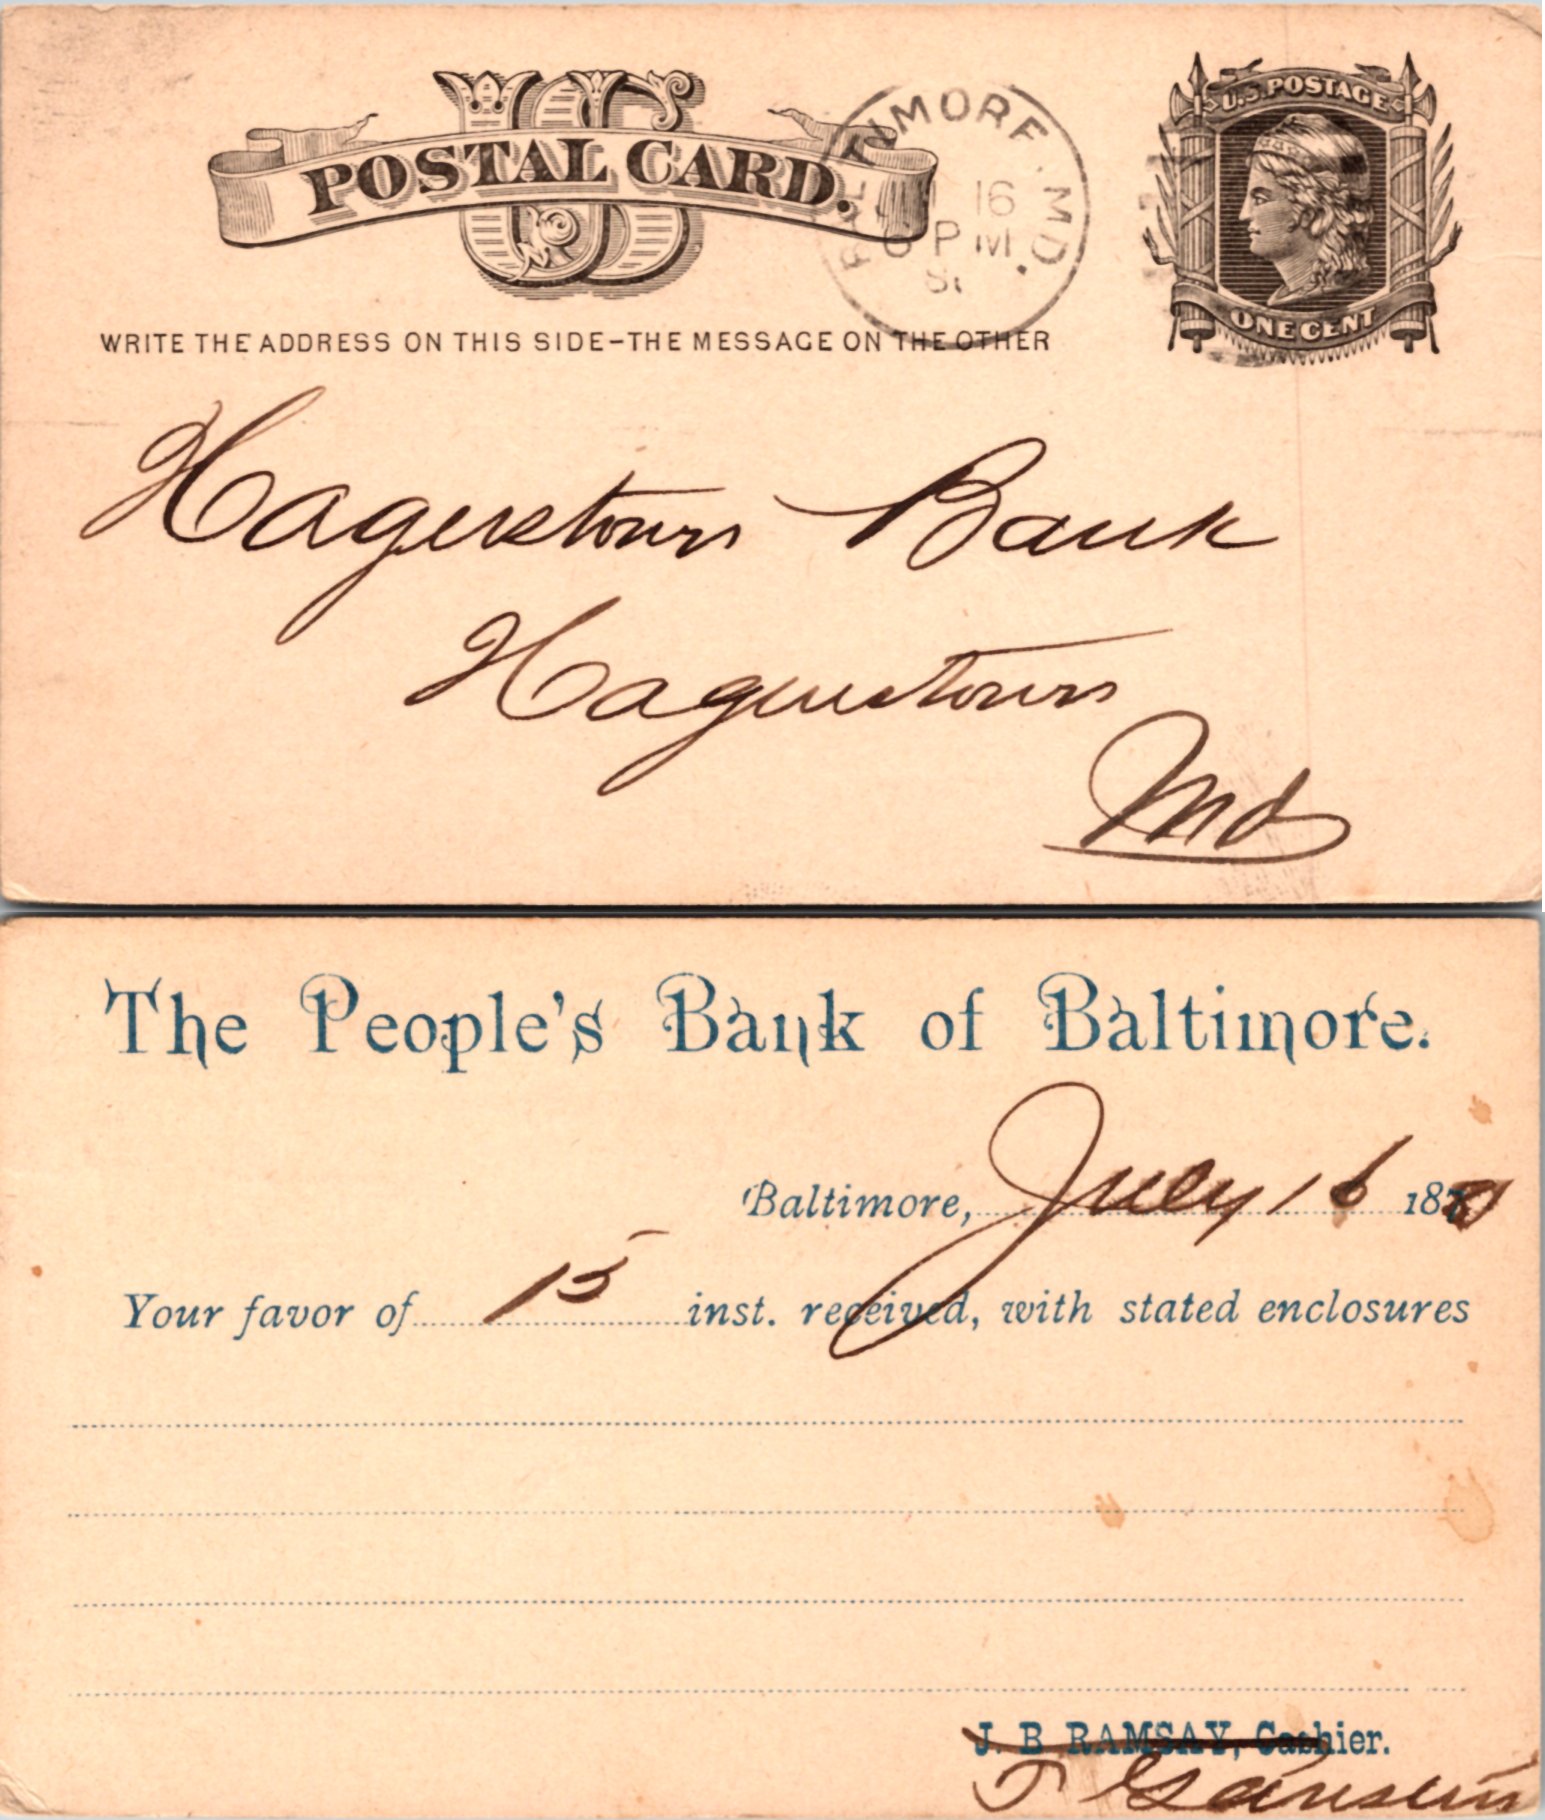 US
POSTAL CARD.
BALTIMORE. MD.
16
6 PM
81
U.S. POSTAGE
ONE CENT
WRITE THE ADDRESS ON THIS SIDE-THE MESSAGE ON THE OTHER
Hagerstown Bank
Hagerstown
Md
The People's Bank of Baltimore.
Baltimore, July 16 1881
Your favor of 15 inst. received, with stated enclosures
J. B. RAMSAY, Cashier.